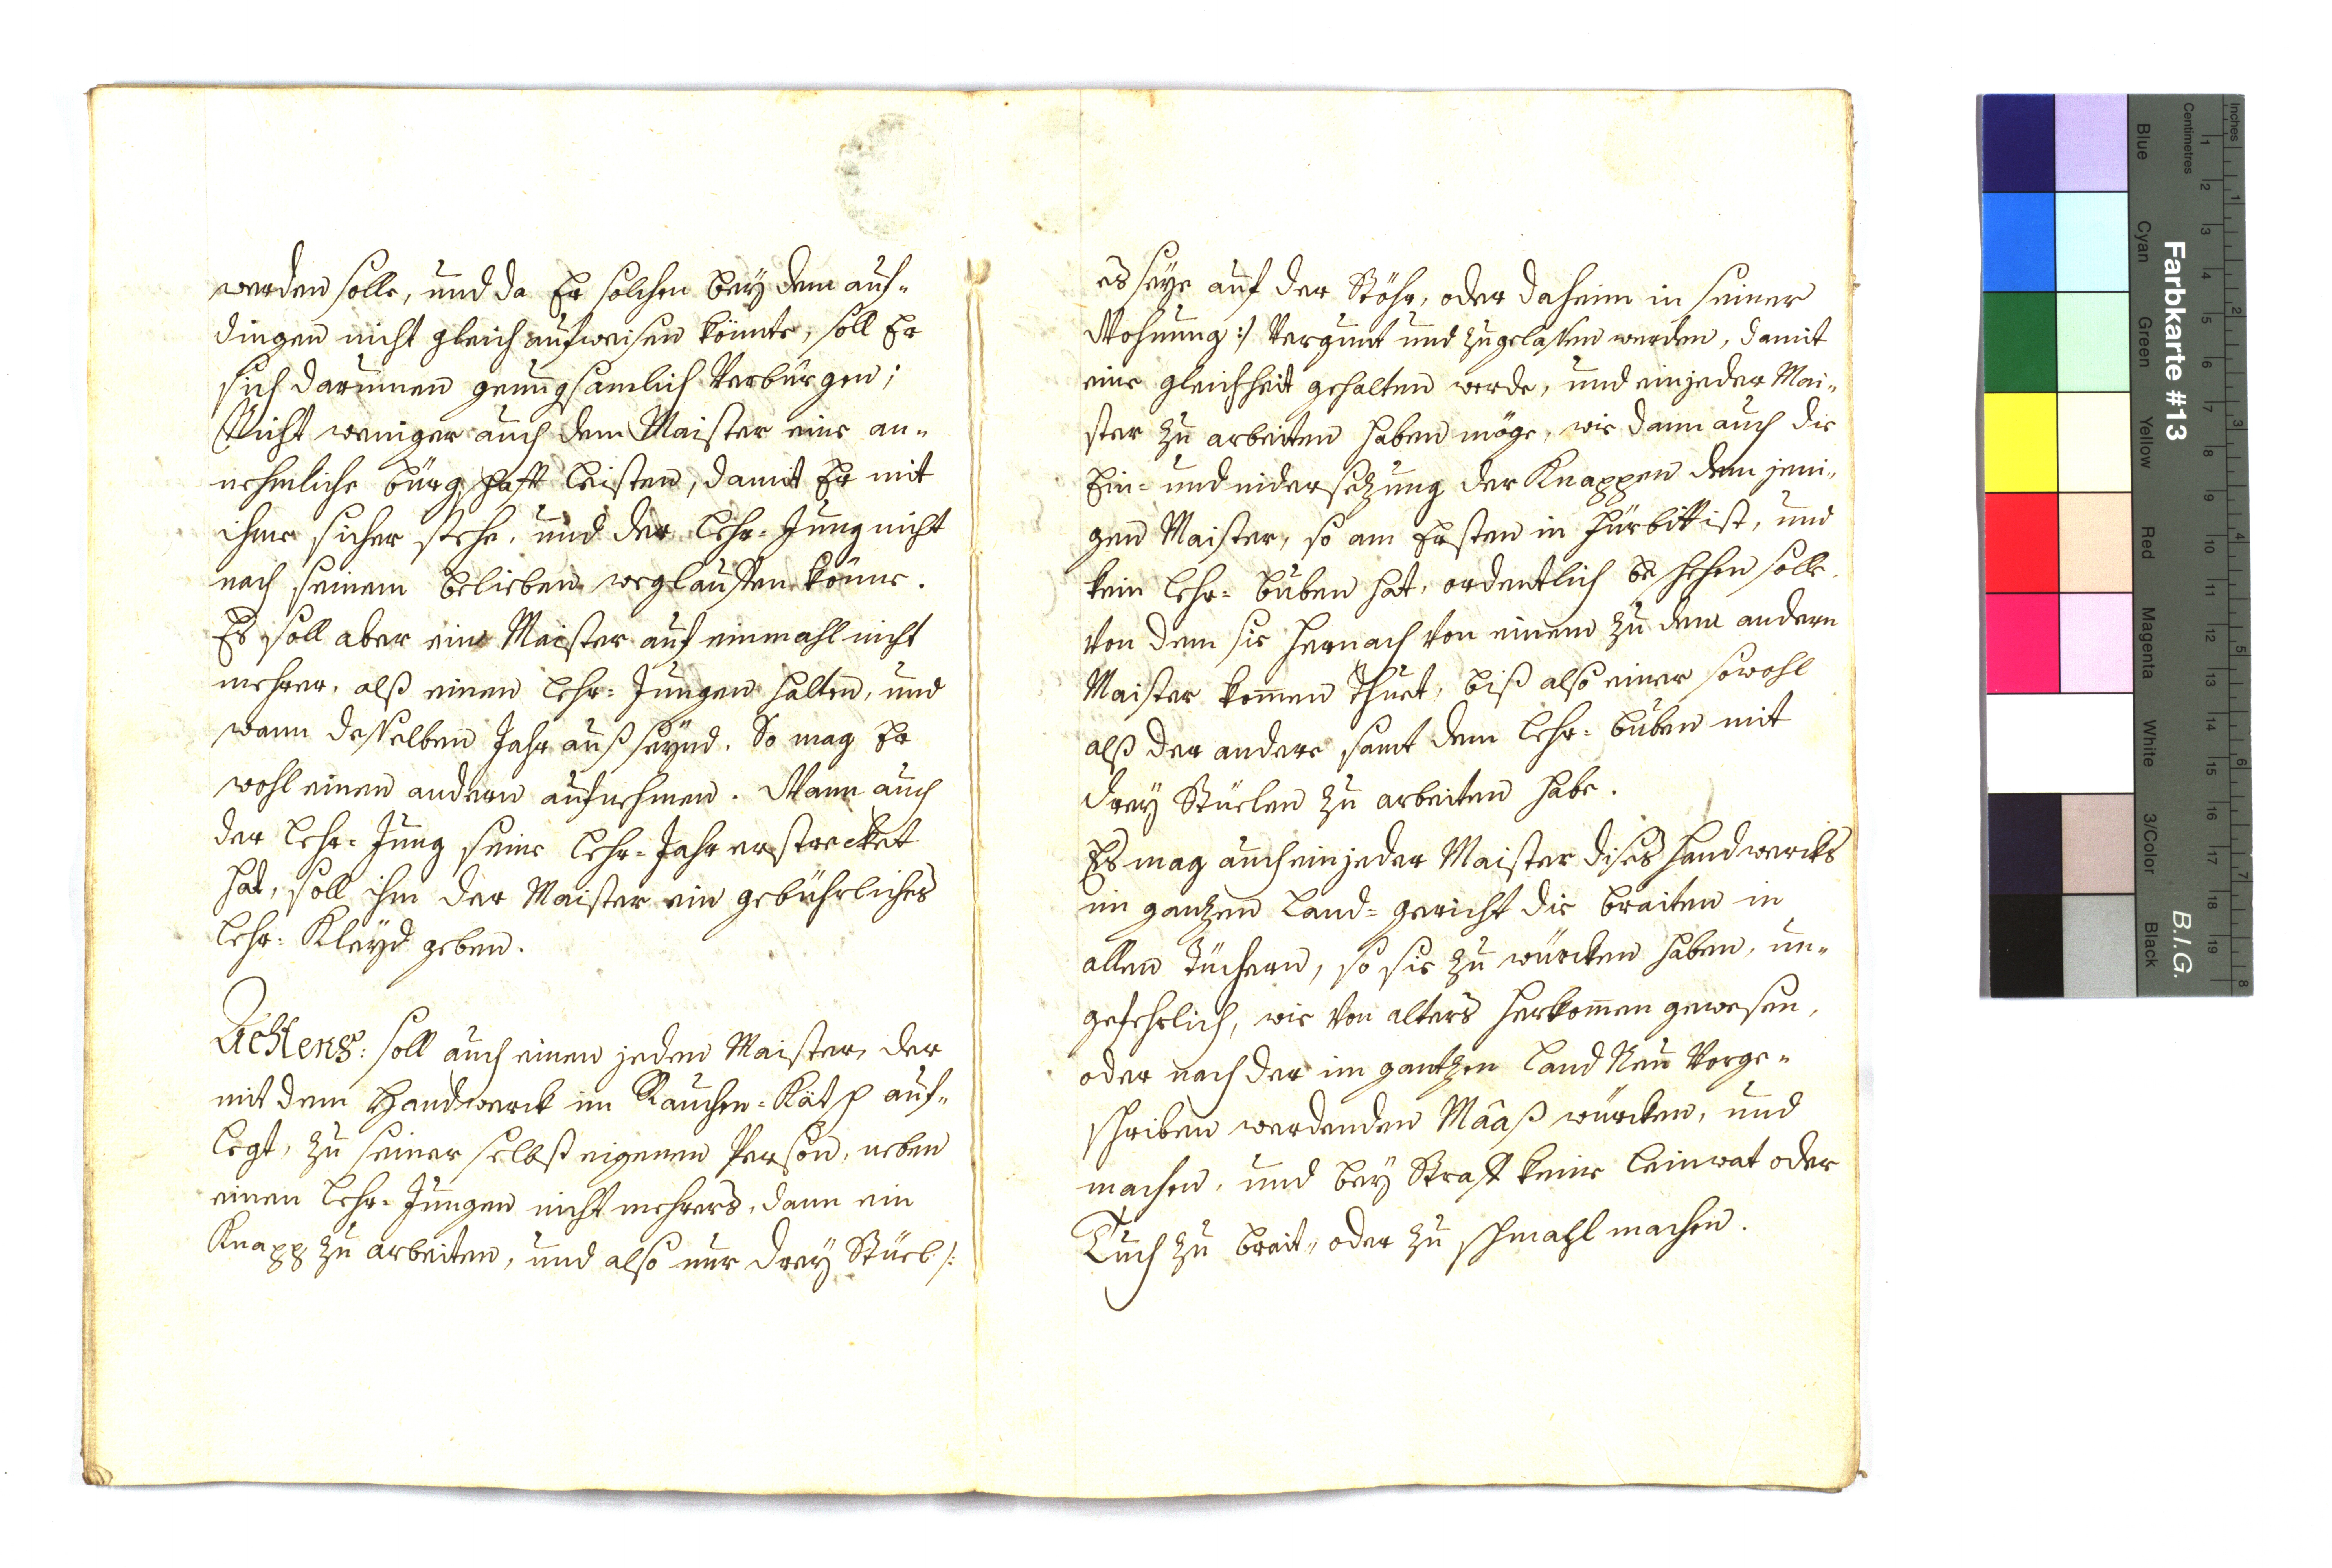 werden solle, und da Er solchen bey dem auf-
dingen nicht gleich aufweisen könnte, soll Er
sich darumen genungsamlich Verbürgen;
Nicht weniger auch dem Maister eine an-
nehmliche bürgschafft leisten, damit Er mit
ihme sicher stehe, und der Lehr-Jung nicht
nach seinem belieben weglauffen könne.
Es soll aber ein Maister auf einmahl nicht
mehrer, alß einen Lehr-Jungen halten, und
wann desselben Jahr auß seynd. So mag Er
wohl einen andern aufnehmen. Wann auch
der Lehr-Jung seine Lehr-Jahr erstrecket
hat, soll ihm der Maister ein gebührliches
Lehr-Kleyd geben.
Achtens: soll auch einen jeden Maister, der
mit dem Handwerck im Rauchen-Kät p auf-
legt, zu seiner selbst eigenen Person, neben
einen Lehr-Jungen nicht mehrers, dann ein
Knapp zu arbeiten, und also nur drey Stüel /:
es seye auf der Stöhr, oder daheim in seiner
Wohnung :/ Vergunt und zugelassen werden, damit
eine gleichheit gehalten werde, und ein jeder Mai-
ster zu arbeiten haben möge, wie dann auch die
Ein- und nidersezung der Knappen dem jeni-
gen Maister, so am Ersten in Fürbitt ist, und
kein Lehr-buben hat, ordentlich beschehen solle.
Von dem sie hernach Von einem zu dem andern
Maister kom̅en Thuet, biß also einer sowohl
alß der andere samt dem Lehr-buben mit
drey Stüelen zu arbeiten habe.
Es mag auch ein jeder Maister dises Handwercks
im ganzen Land-gericht die braiten in
allen Tüchern, so sie zu würcken haben, un-
gefehrlich, wie Von alters herkom̅en gewesen,
oder nach der im gantzen Land Neu Vorge-
schriben werdenden Mâaß würcken, und
machen, und bey Straff keine Leinwat oder
Tuch zu brait- oder zu schmahl machen.
Farbkarte #13
B.I.G.
Inches
Centimetres
1 2 3 4 5 6 7 8
1 2 3 4 5 6 7 8 9 10 11 12 13 14 15 16 17 18 19
Blue
Cyan
Green
Yellow
Red
Magenta
White
3/Color
Black